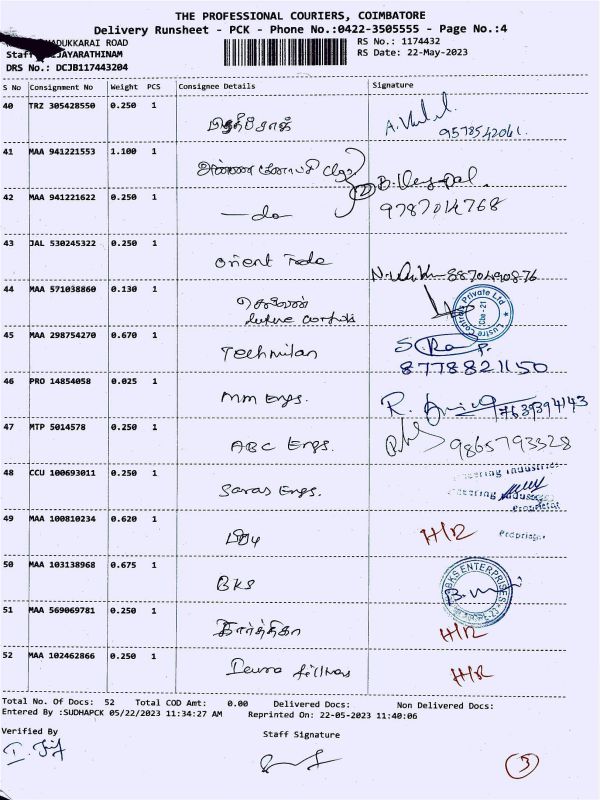 THE PROFESSIONAL COURIERS, COIMBATORE
Delivery Runsheet - PCK - Phone No.:0422-3505555 - Page No.:4
ADUKKARAI ROAD
RS No.: 1174432
Staff JAYARATHINAM
RS Date: 22-May-2023
DRS No.: DCJB117443204
S No Consignment No Weight PCS Consignee Details Signature
40 TRZ 305428550 0.250 1
9578542061.
41 MAA 941221553 1.100 1
42 MAA 941221622 0.250 1 — do
9787014768
43 JAL 530245322 0.250 1 Orient Trade
8870490876
44 MAA 571038860 0.130 1
Lustre Controls Private Ltd
Cbe - 21
45 MAA 298754270 0.670 1 Techmilan
8778821150
46 PRO 14854058 0.025 1 MM Engs.
7639394143
47 MTP 5014578 0.250 1 ABC Engs.
9865793328
48 CCU 100693011 0.250 1 Saras Engs.
49 MAA 100810234 0.620 1 H/R
50 MAA 103138968 0.675 1 BKS
BKS ENTERPRISES
51 MAA 569069781 0.250 1 கார்த்திகா H/R
52 MAA 102462866 0.250 1 H/R
Total No. Of Docs: 52 Total COD Amt: 0.00 Delivered Docs: Non Delivered Docs:
Entered By :SUDHAPCK 05/22/2023 11:34:27 AM Reprinted On: 22-05-2023 11:40:06
Verified By
Staff Signature
3